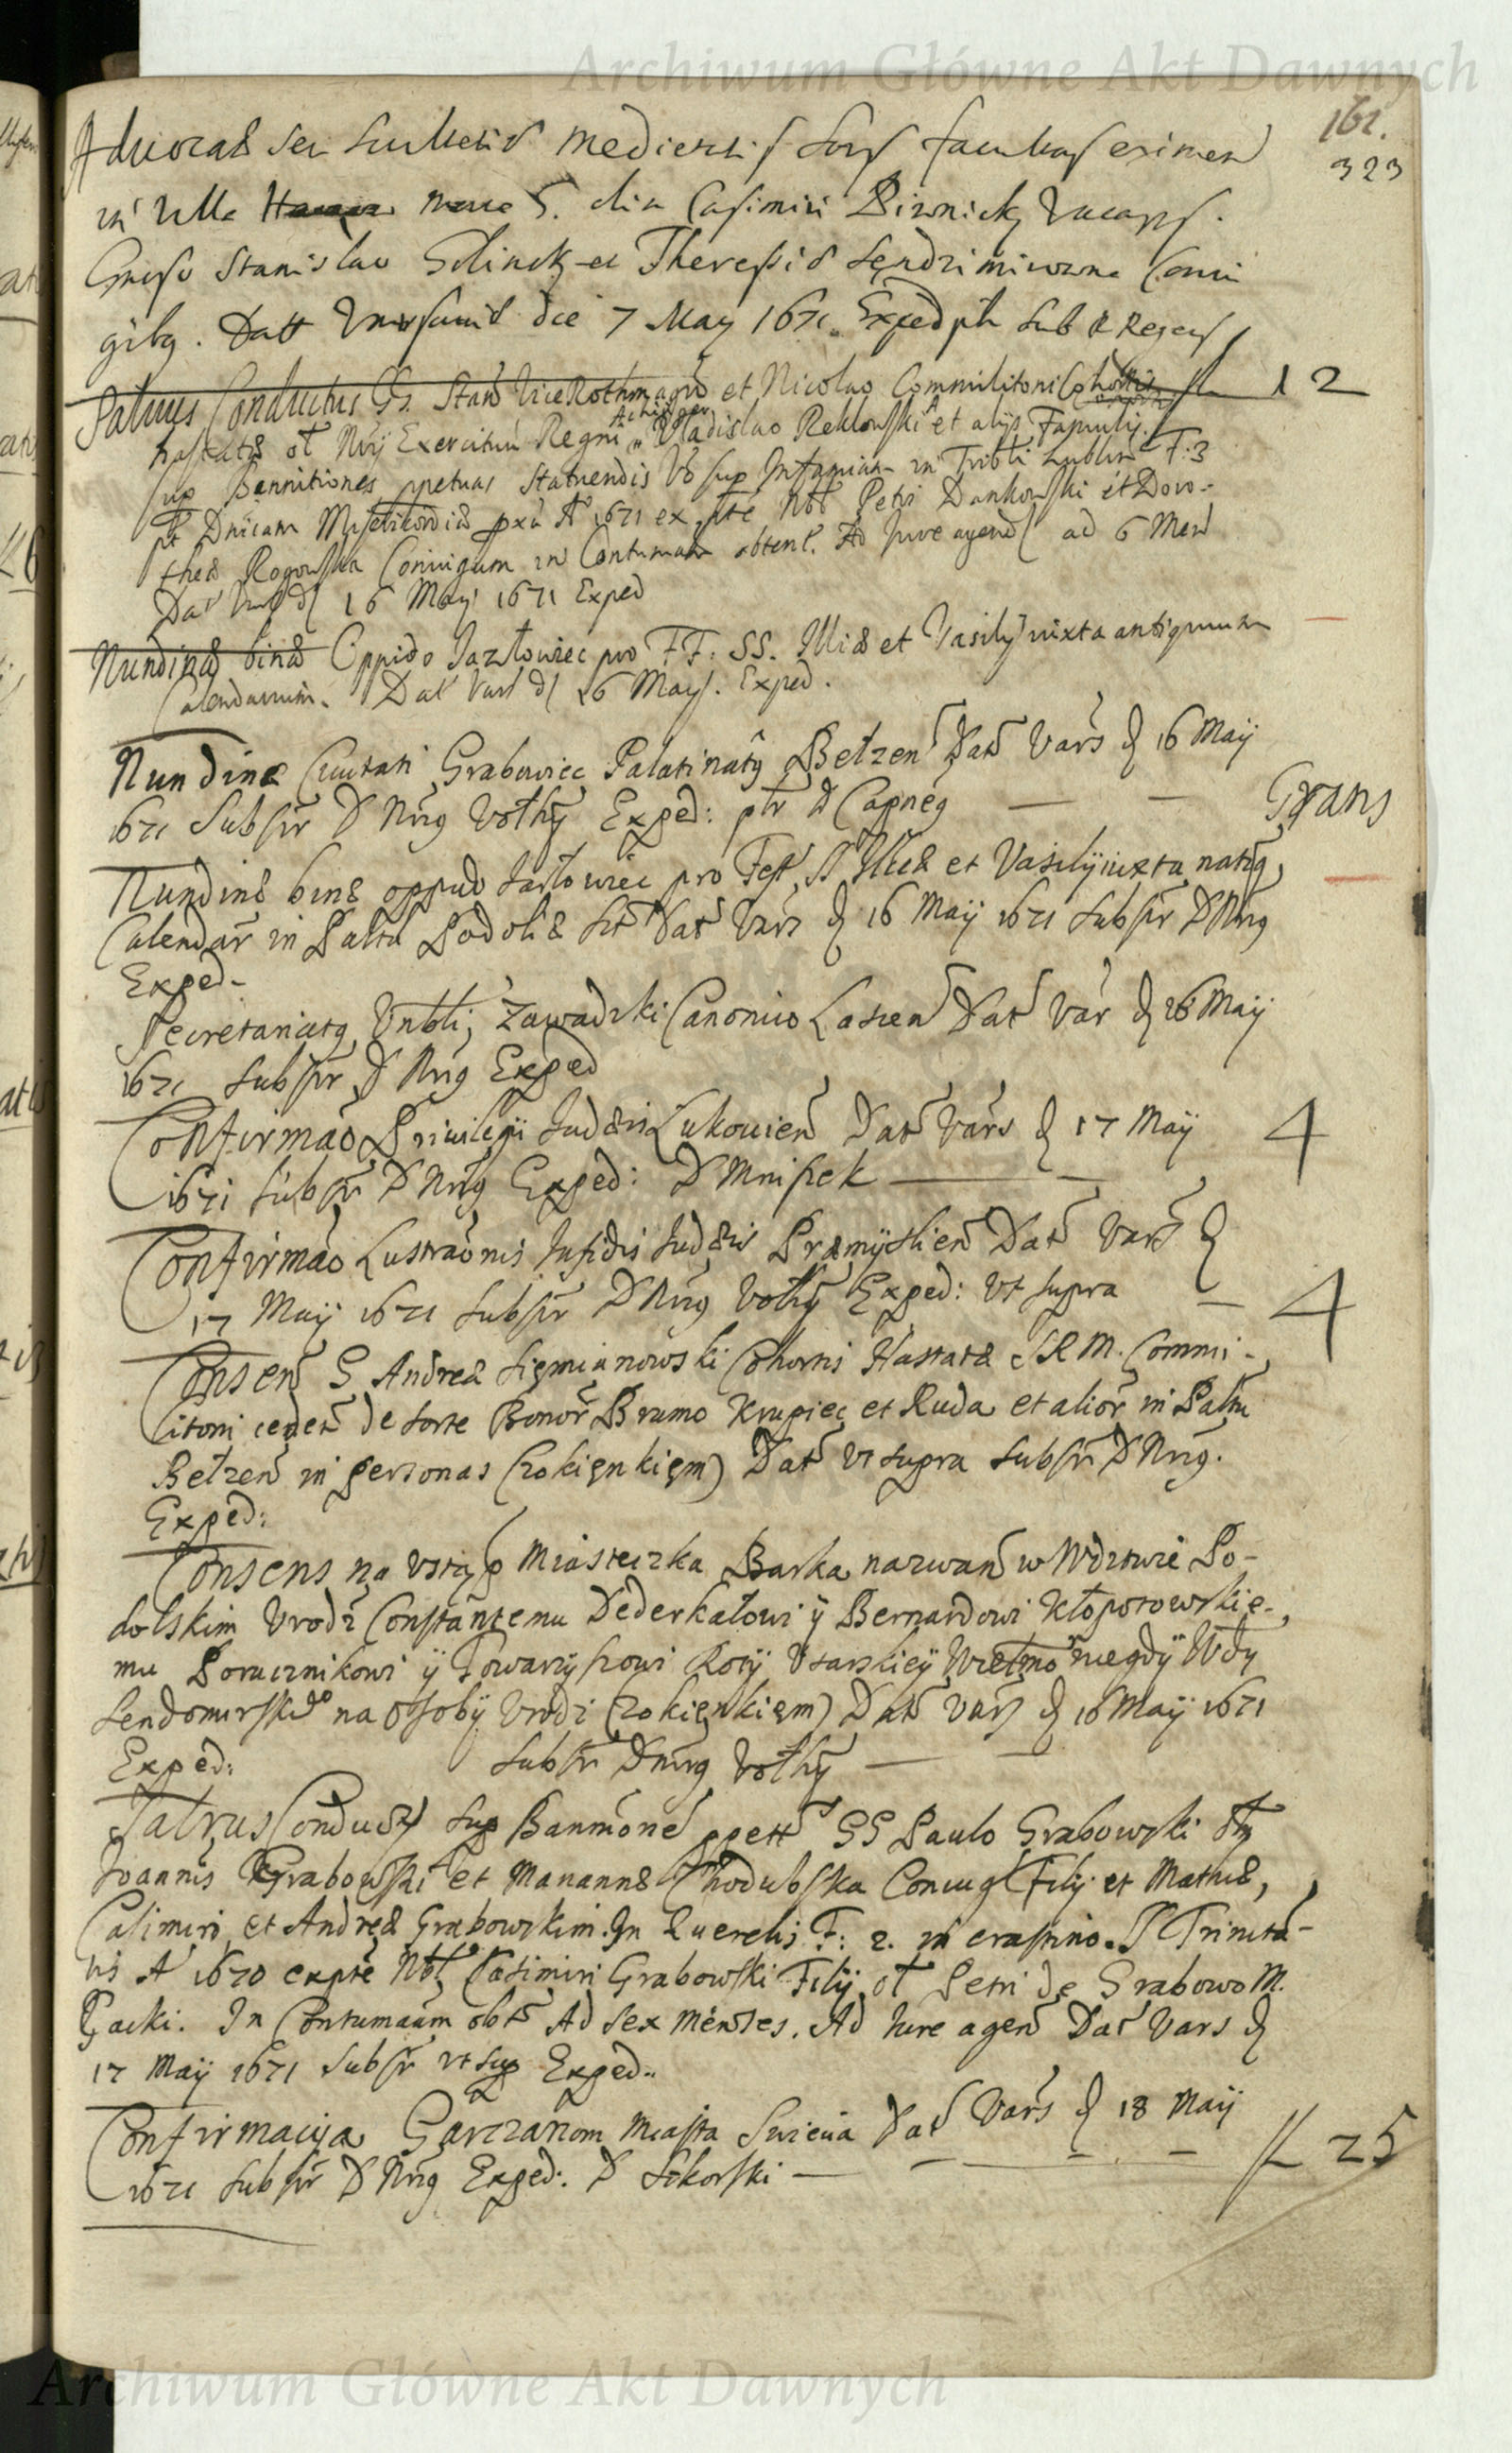 Archiwum Główne Akt Dawnych
161.
323
Advocat& seu Scultetid medietatis
in Villa novae S. olim Casimiri vacan
Gnoso Stanislao et Theressid Coniu
gibg. Datt Varsauid die 7 May 1671. Exped ptr sub R Regens
Salvus Conductus GG. Stan ViceRothmagro et Nicolao Commilitoni Cohortis fl 12
hastat& ol Nrij Exercitus Regni Vladislao Reklowski et alys Famulis
sup Bannitiones ppetuas Statuendis Vo sup Infamiam in Tribli Lublin F: 3
pt Dnicam Misericordi& pxa A 1671 ex pte Nbl Petri Dankowski et Doro-
the& Rogowska Coniugum in Contumatm obtent. Ad Jure agend ad 6 Mens
Dat Vars d 16 Maÿ 1671 Exped
Nundin& bin& Oppido Jazłowiec pro FF. SS. Illi& et Vasilÿ iuxta antiquum
Calendarium. Dat Vars d 16 Maÿ. Exped.
Nundin& Ciuitati Grabowiec Palatinatg Bełzen Dat Vars d 16 Maÿ
1671 Subscr D Nrig Vołhÿ Exped: ptr D Capneg — — Grans
Nundin& bin& oppido Jazłowiec pro Fest SS Illi& et Vasilÿ iuxta
Calendar in Paltu Podoli& Sit Dat Vars d 16 Maÿ 1671 Subscr D Nrig
Exped-
Secretariatg Vnbli, Zawadzki Canonico Dat Var d 16 Maÿ
1671 Subscr D Nrig Exped
Confirmao Priuilegii Jud&is Lukouien Dat Vars d 17 Maÿ 4
1671 Subscr D Nrig Exped: D Mnisek —
Confirmao Lustraonis Infidis Jud&is Pr&myslien Dat Vars d
17 Maÿ 1671 Subscr D Nrig Vołhÿ Exped: Vt supra — 4
Consens G Andre& Siemianowski Cohortis Hastat& SRM. Commi-
litoni ceden de sorte Bonor Brumo Krupiec et Ruda et alior in Paltu
Bełzen in personas (z okienkiem) Dat Vt supra Subscr D Nrig.
Exped:
Consens na Vstęp Miasteczka Barka nazwan w Wdztwie Po-
dolskim Vrodz Constantemu Dederkałowi ÿ Bernardowi Kłopotowskie-
mu Porucznikowi ÿ Towarzyszowi Roty Vsarskieÿ Wielmo niegdÿ Wdy
Sendomirskigo na Osobÿ Vrodz (z okienkiem) Dat Vars d 16 Maÿ 1671
Exped: Subscr D Nrig Vołhÿ —
Salvus Conductg sup Bannione ppett GG Paulo Grabowski
Joannis Grabowski et Mariann& Chodubska Coniug Filij et Mathi&,
Casimiro et Andre& Grabowskim. In Querelis F: 2. in crastino SS Trinita-
tis A 1670 ex pte Nbl Casimiri Grabowski Filij ol Petri de Grabowo M.
Gacki. In Contumaam obt Ad sex Menses. Ad Jure agen Dat Vars d
17 Maÿ 1671 Subscr vt sup Exped..
Confirmacija Garczarom Miasta Swiecia Dat Vars d 18 Maÿ
1671 Subscr D Nrig Exped: D Sikorski — — — fl 25
Archiwum Główne Akt Dawnych